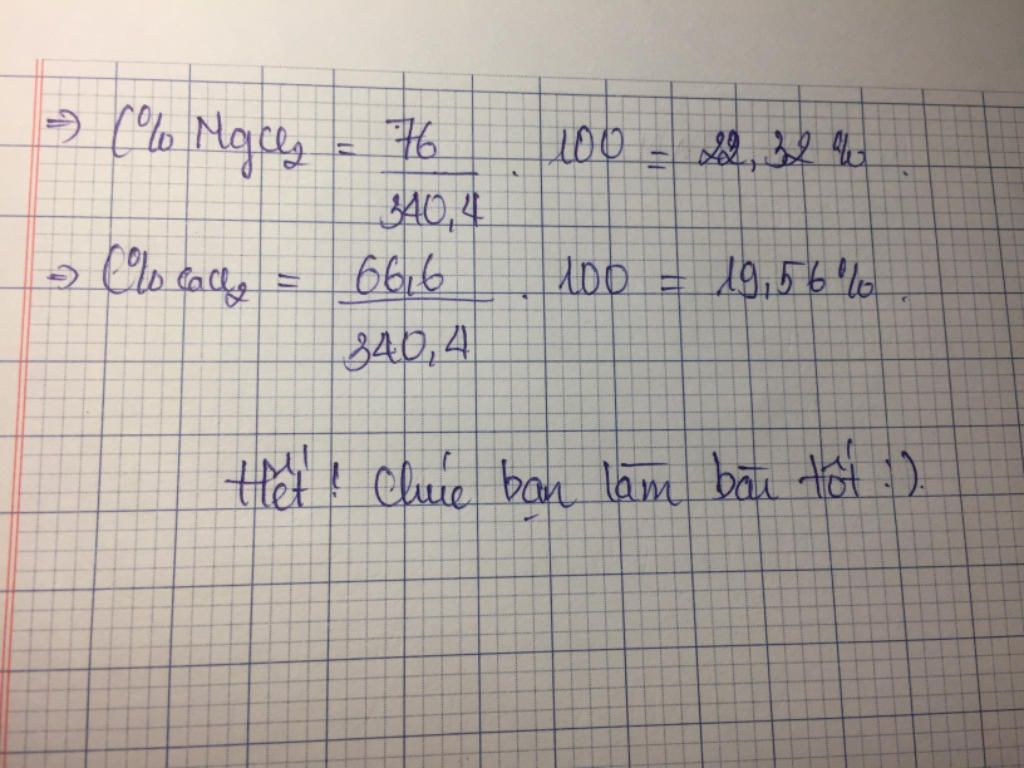 ⇒ C% MgCl₂ = 76/340,4 . 100 = 22,32 % .
⇒ C% CaCl₂ = 66,6/340,4 . 100 = 19,56 % .
Hết! Chúc bạn làm bài tốt :).